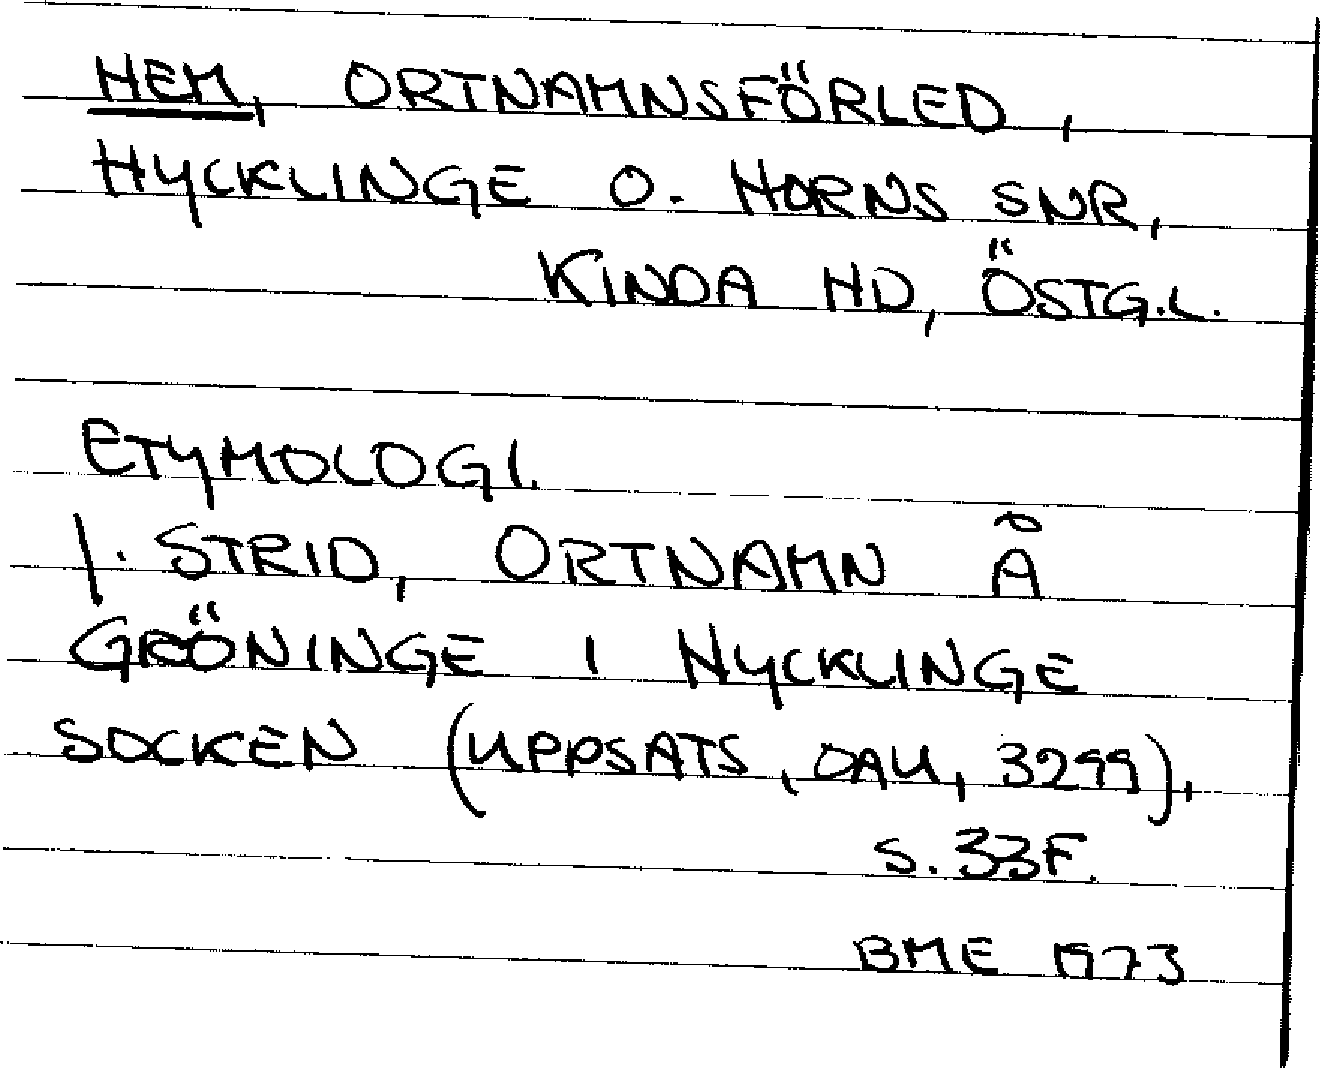 HEM, ORTNAMNSFÖRLED,
HYCKLINGE O. HORNS SNR,
KINDA HD, ÖSTG.L.
ETYMOLOGI.
J. STRID, ORTNAMN Å
GRÖNINGE I HYCKLINGE
SOCKEN (UPPSATS, OAU, 3299),
S. 33F.
BME 1973